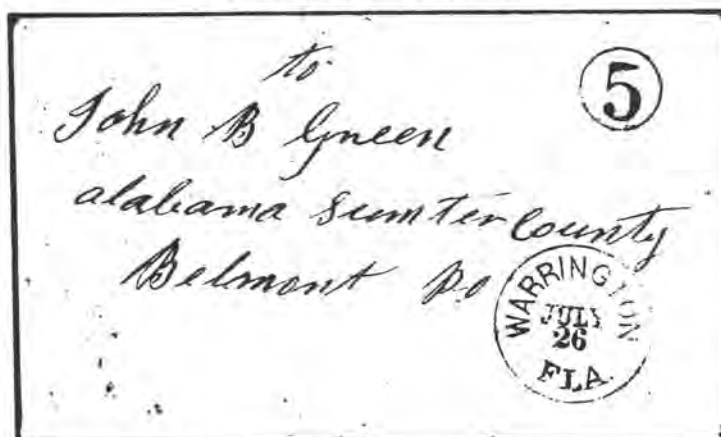 to
5
John B Green
alabama Sumter County
Belmont Po
WARRINGTON
JULY
26
FLA.